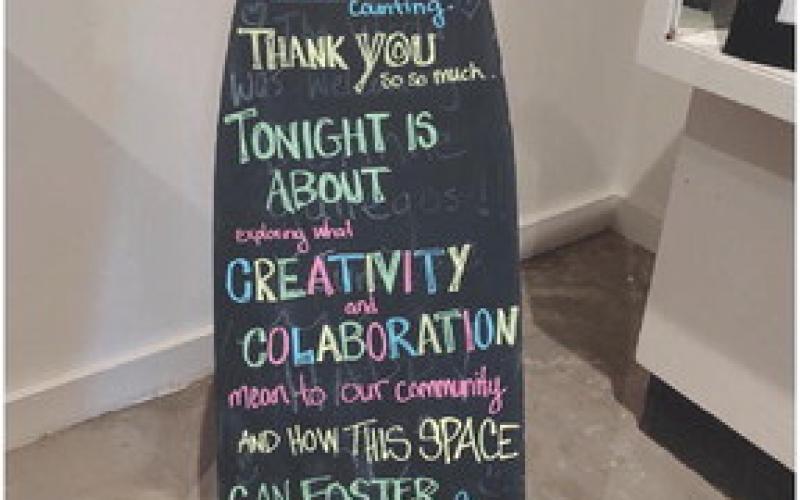 Counting.
THANK YOU
so so much.
TONIGHT IS
ABOUT
exploring what
CREATIVITY
and
COLABORATION
mean to our community
AND HOW THIS SPACE
CAN FOSTER